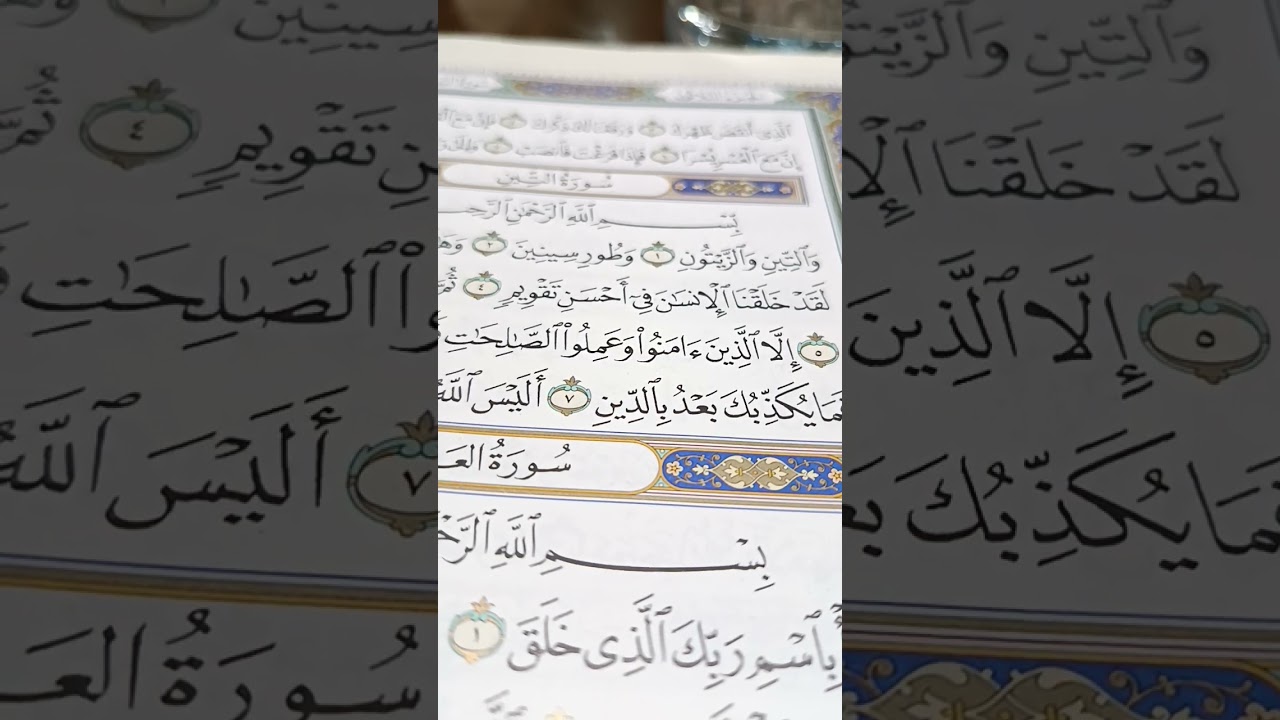 الَّذِي أَنقَضَ ظَهْرَكَ ٣ وَرَفَعْنَا لَكَ ذِكْرَكَ ٤ فَإِنَّ مَعَ
إِنَّ مَعَ الْعُسْرِ يُسْرًا ٦ فَإِذَا فَرَغْتَ فَانصَبْ ٧ وَإِلَىٰ
سُورَةُ التِّينِ
بِسْمِ ٱللَّهِ ٱلرَّحْمَٰنِ
وَٱلتِّينِ وَٱلزَّيْتُونِ ١ وَطُورِ سِينِينَ ٢ وَهَٰ
لَقَدْ خَلَقْنَا ٱلْإِنسَٰنَ فِىٓ أَحْسَنِ تَقْوِيمٍ ٤ ثُمَّ
٥ إِلَّا ٱلَّذِينَ ءَامَنُوا۟ وَعَمِلُوا۟ ٱلصَّٰلِحَٰتِ
فَمَا يُكَذِّبُكَ بَعْدُ بِٱلدِّينِ ٧ أَلَيْسَ ٱللَّهُ
سُورَةُ العَ
بِسْمِ ٱللَّهِ ٱلرَّحْ
بِٱسْمِ رَبِّكَ ٱلَّذِى خَلَقَ ١